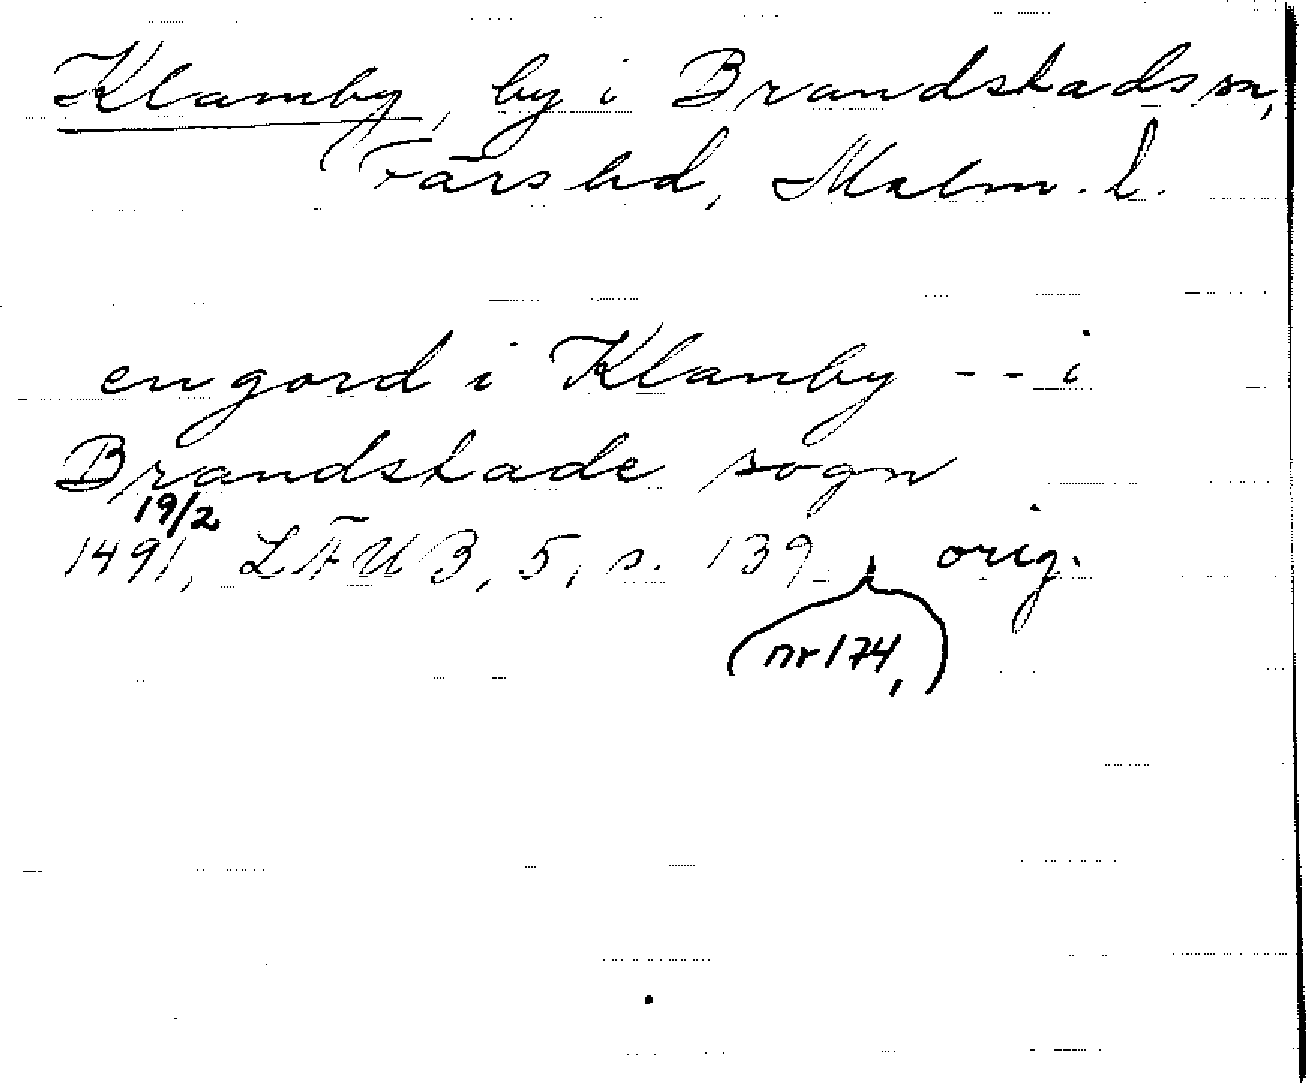 Klamby, by i Brandstads sn,
Färs hd, Malm. l.
en gord i Klamby -- i
Brandstade sogn
19/2
1491, LÄUB, 5, s. 139, orig.
nr 174,